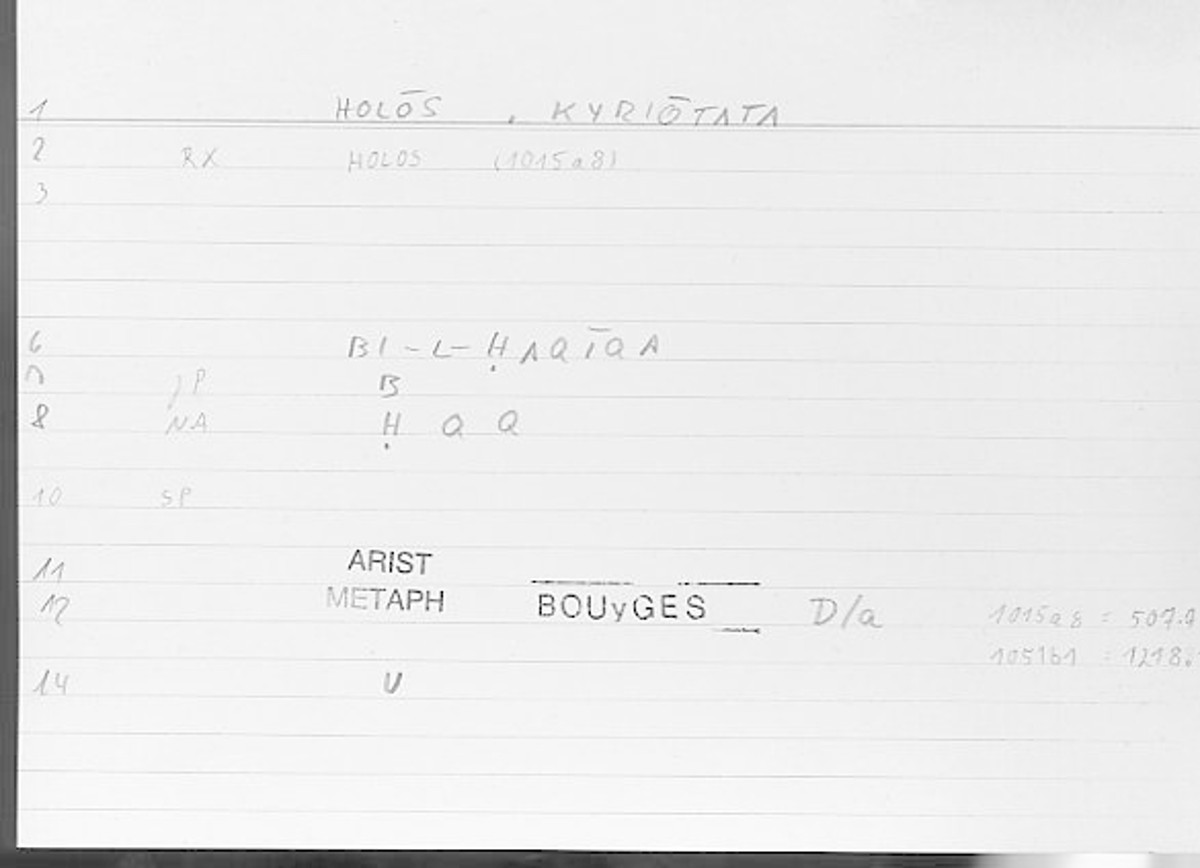 1 HOLŌS , KYRIŌTATA
2 RX HOLOS (1015a8)
3
6 BI-L-ḤAQĪQA
7 JP B
8 NA Ḥ Q Q
10 SP
11 ARIST
12 METAPH BOUyGES D/a 1015a8 = 507.9
1051b1 = 1218.
14 V